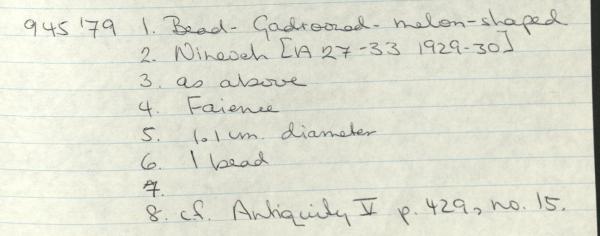 945 '79 1. Bead - Gadrooned - melon-shaped
2. Nineveh [IA 27-33 1929-30]
3. as above
4. Faience
5. 1.1 cm. diameter
6. 1 bead
7.
8. cf. Antiquity V p. 429, no. 15.